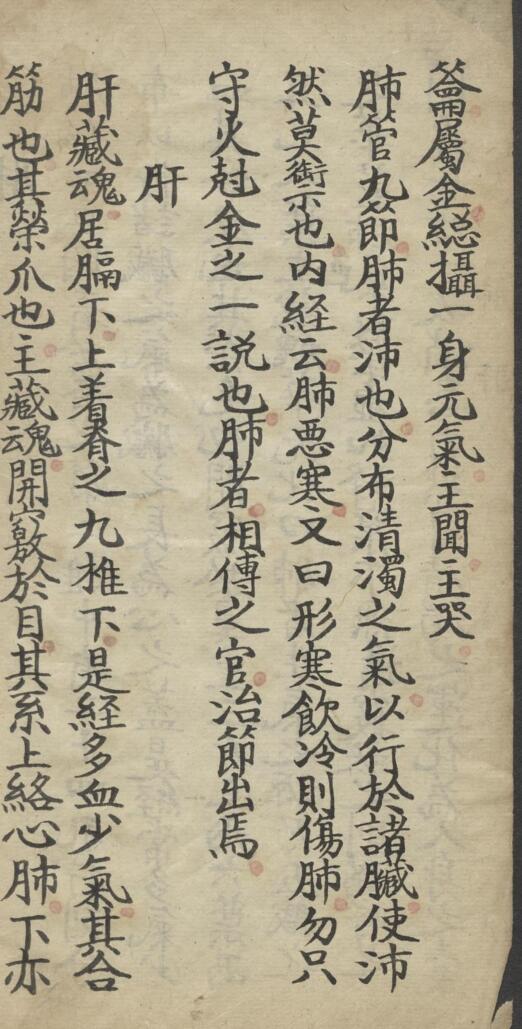 籥屬金総攝一身元氣主聞主哭
肺管九節肺者沛也分布清濁之氣以行於諸臓使沛
然莫御示也内経云肺悪寒又曰形寒飲冷則傷肺勿只
守火尅金之一説也肺者相傳之官治節出焉
肝
肝藏魂居膈下上着脊之九推下是経多血少氣其合
筋也其榮爪也主藏魂開竅於目其系上絡心肺下亦